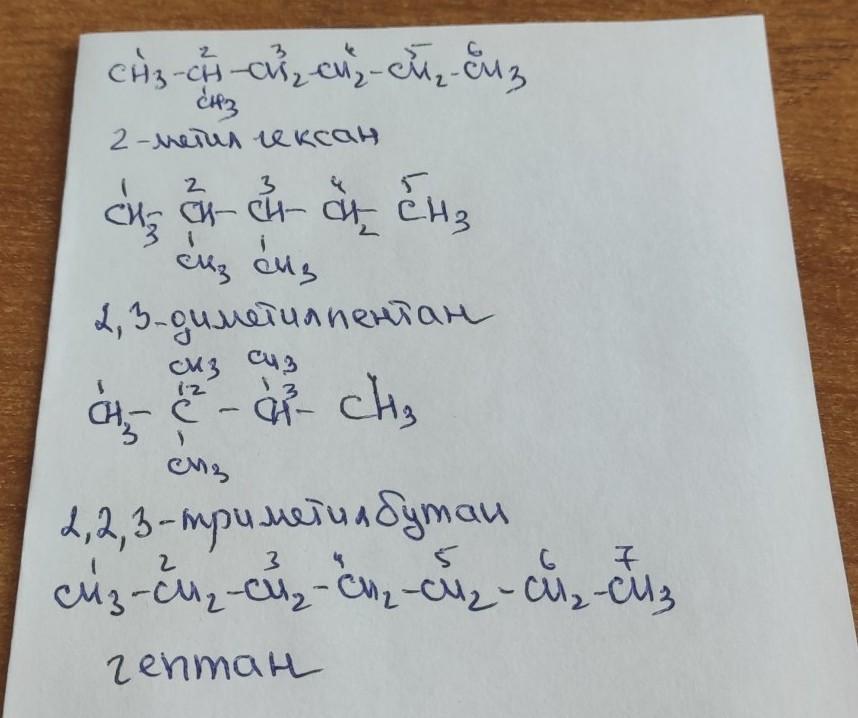 1 2 3 4 5 6
CH3-CH-CH2-CH2-CH2-CH3
CH3
2-метилгексан
1 2 3 4 5
CH3-CH-CH-CH2-CH3
CH3 CH3
2,3-диметилпентан
CH3 CH3
1 2 3 4
CH3-C-CH-CH3
CH3
2,2,3-триметилбутан
1 2 3 4 5 6 7
CH3-CH2-CH2-CH2-CH2-CH2-CH3
гептан